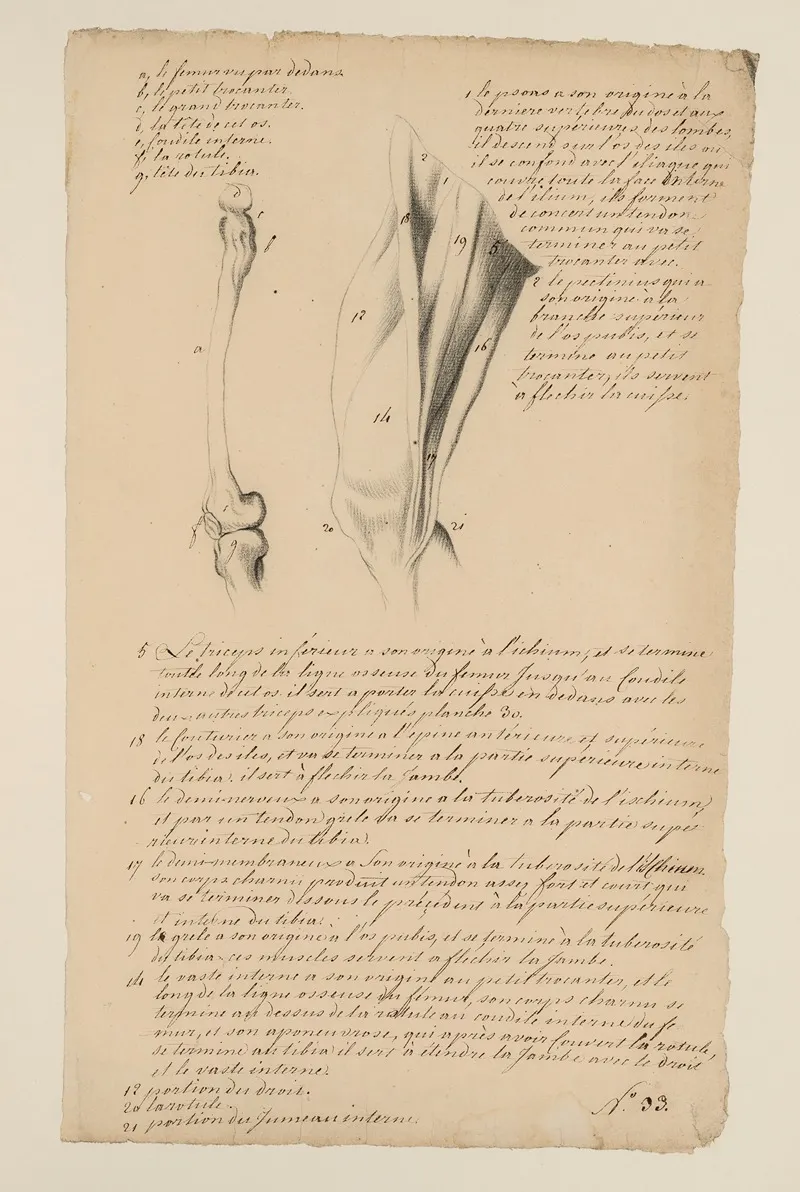 a, le femur vu par dedans
b, le petit trocanter.
c, le grand trocanter.
d, la tête de cet os.
e, condile interne.
f, la rotule.
g, tête du tibia.
1 le psoas a son origine à la
derniere vertebre du dos et aux
quatre supérieures des lombes,
il descend sur l'os des iles ou
il se confond avec l'iliaque qui
couvre toute la face interne
de l'ilium, ils forment
de concert un tendon
commun qui va se
terminer au petit
trocanter avec.
2 le pectinius qui a
son origine à la
branche supérieur
de l'os pubis, et se
termine au petit
trocanter, ils servent
à flechir la cuisse.
d
c
b
a
f
g
2
1
18
19
5
12
16
14
17
20
21
5 Le triceps inférieur a son origine à l'ichium, et se termine
tout le long de la ligne osseuse du femur jusqu'au condile
interne de cet os. il sert a porter la cuisse en dedans avec les
deux autres triceps expliqués planche 30.
18 le couturier a son origine a l'épine antérieure et supérieure
de l'os des iles, et va se terminer a la partie supérieure interne
du tibia. il sert à flechir la jambe.
16 le demi-nerveux a son origine a la tuberosité de l'ischium,
et par un tendon grele va se terminer a la partie supé-
rieur interne du tibia.
17 le demi-membraneux a son origine à la tuberosité de l'ischium
son corps charnu produit un tendon assez fort et court qui
va se terminer dessous le précédent à la partie supérieure
et interne du tibia.
19 le grele a son origine à l'os pubis, et se termine à la tuberosité
du tibia ces muscles servent a flechir la jambe.
14 le vaste interne a son origine au petit trocanter, et le
long de la ligne osseuse du fémur, son corps charnu se
termine au dessus de la rotule au condile interne du fe
mur, et son aponeuvrose, qui après avoir couvert la rotule,
se termine au tibia il sert à étendre la jambe avec le droit
et le vaste interne.
12 portion du droit.
20 la rotule.
21 portion du jumeau interne.
N.º 33.